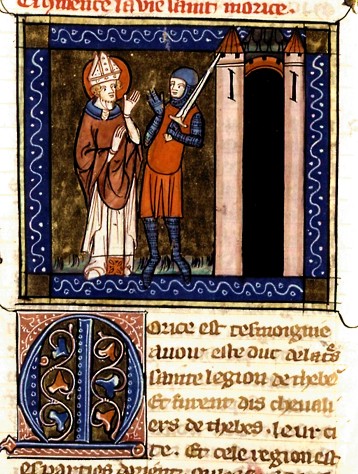 Ci comence la vie saint morice.
Morice est tesmoignie
auoir este duc de la
sainte legion de thebe
Et furent dis cheuali
ers de thebes. leur ci
te. Et cele region est
es parties dorient